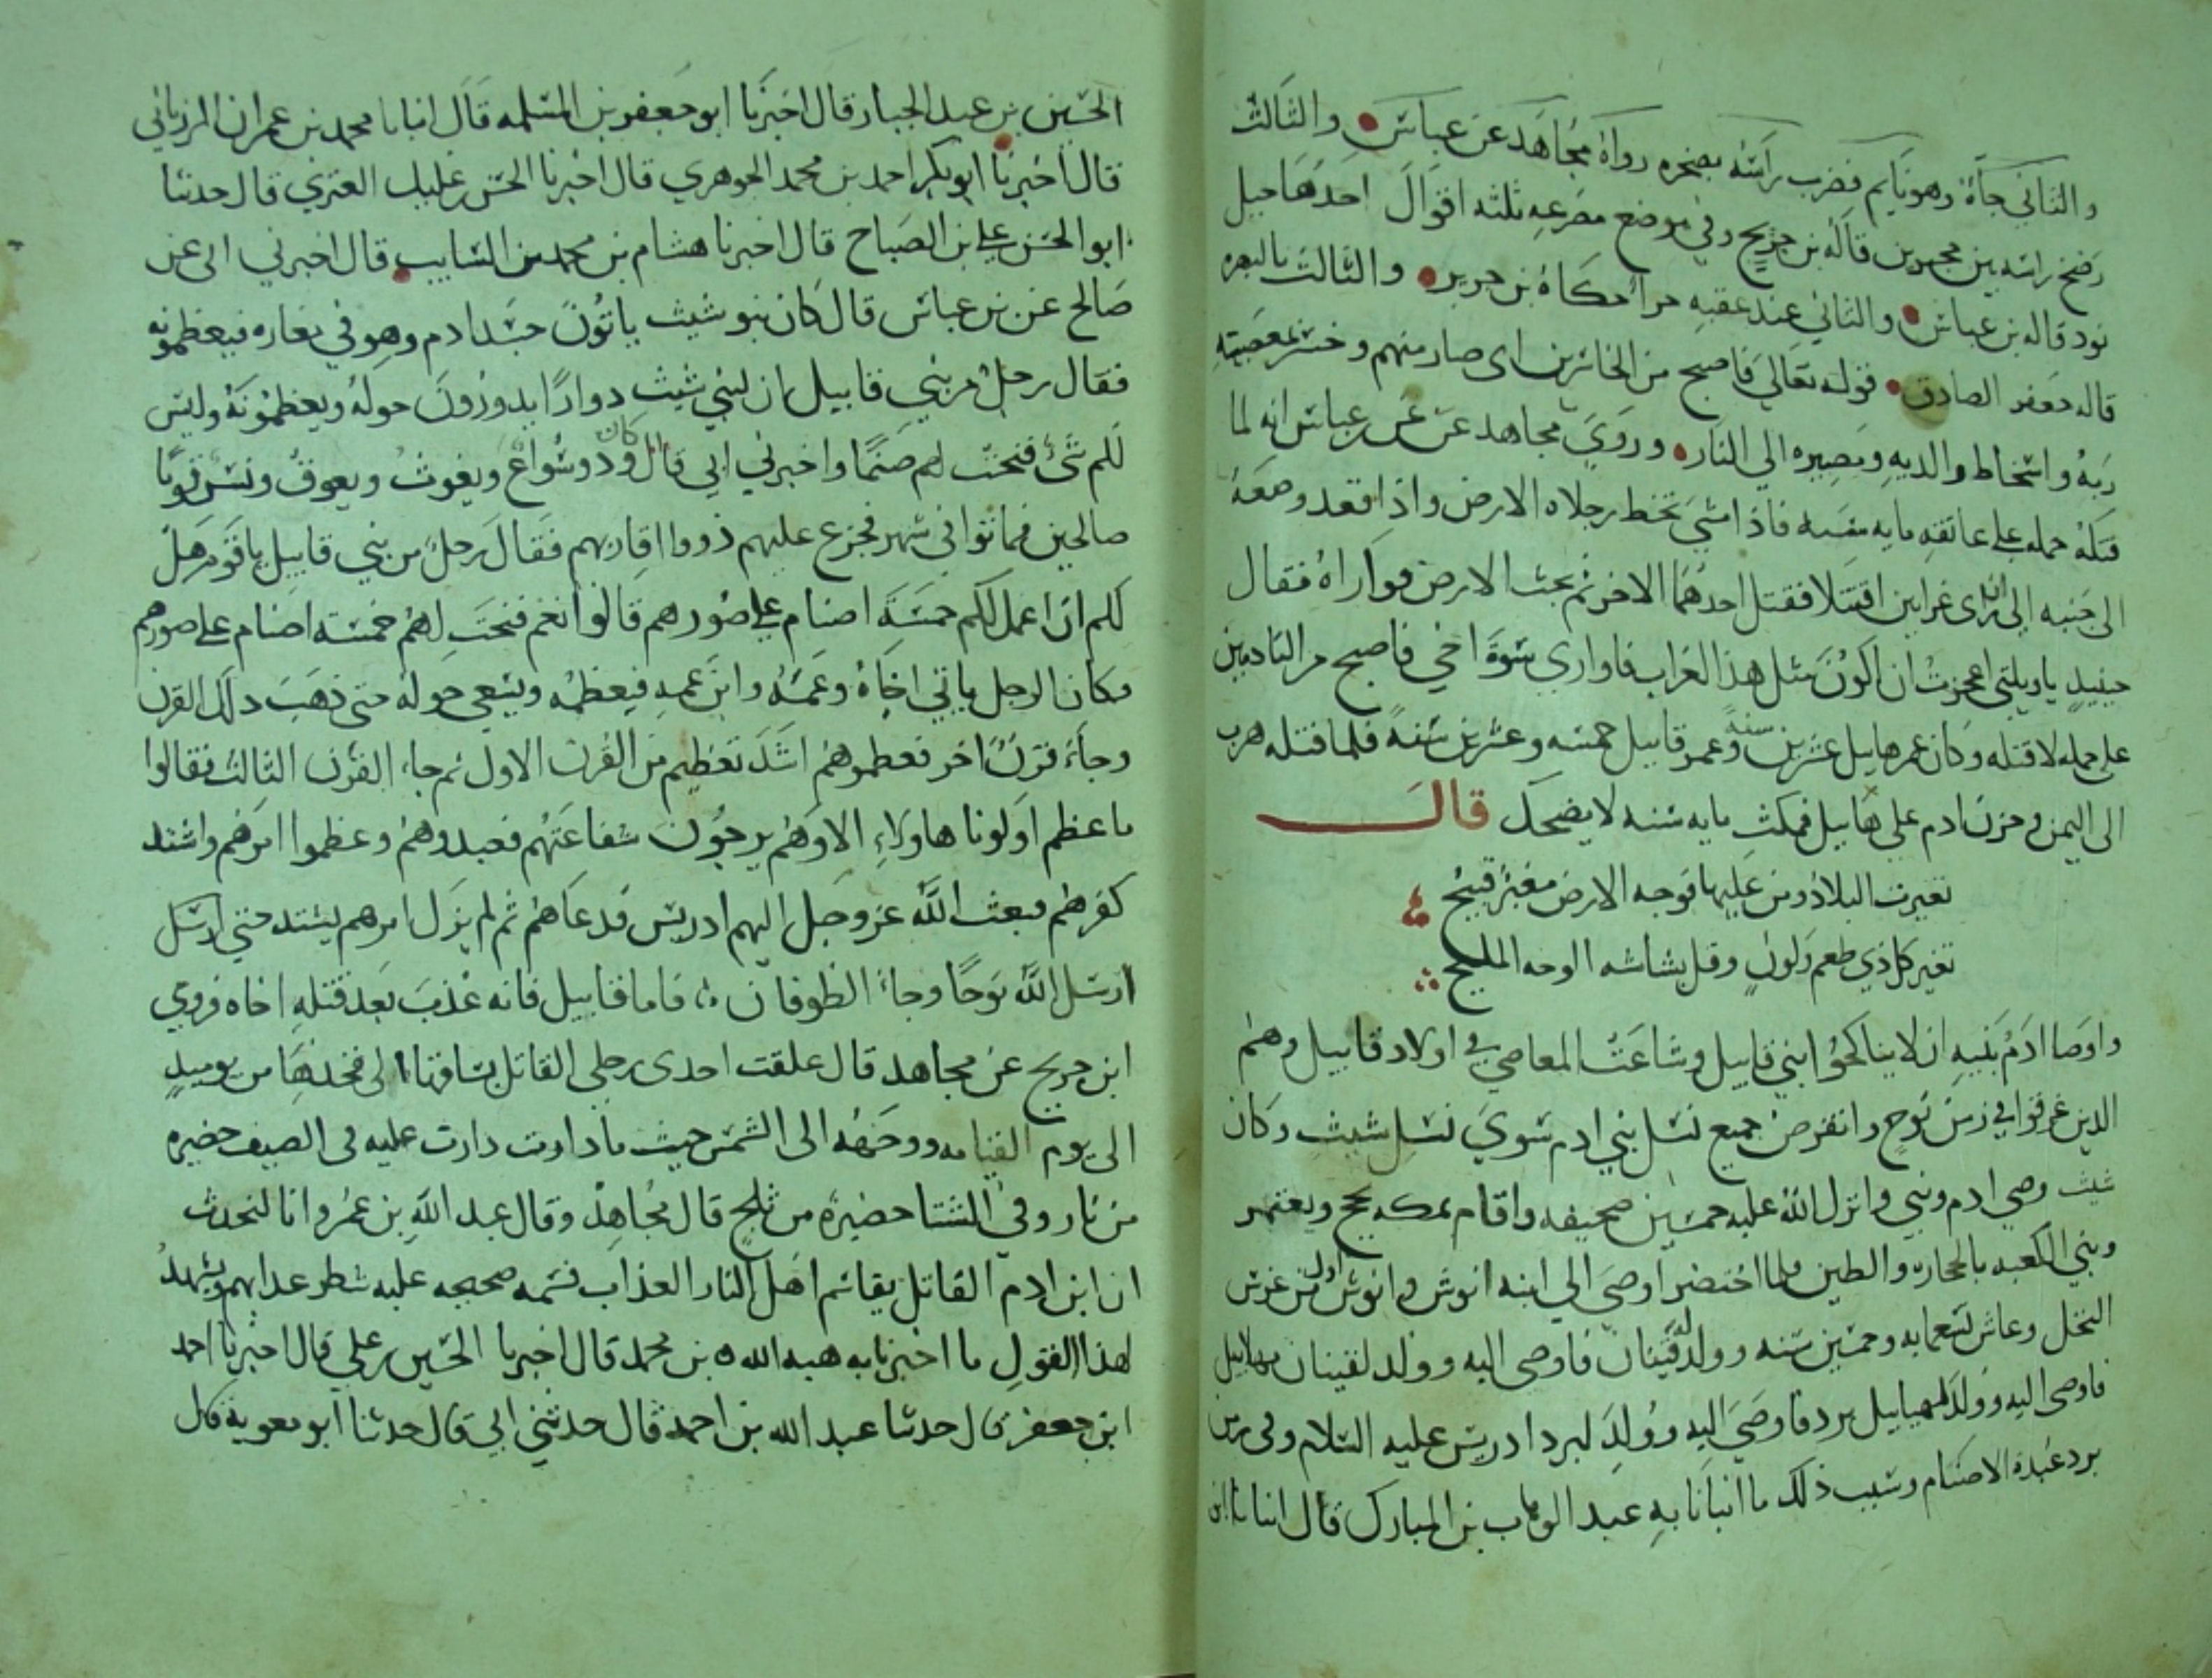 والثاني جآءه وهو نايم فضرب راسه بصخره رواه مجاهد عن عباس والثالث
رضخ راسه بين حجرين قاله بن جريح وفي موضع مصرعه ثلثه اقوال احدها جبل
نود قاله بن عباس والثاني عند عقبه حرا حكاه بن جرير والثالث بالبصره
قاله جعفر الصادق قوله تعالي فاصبح من الخاسرين اى صار منهم وخسر بمعصيته
ربه واسخاط والديه ومصيره الي النار وروي مجاهد عن بن عباس انه لما
قتله حمله علي عاتقه مايه سنه فاذا مشي تخط رجلاه الارض واذا قعد وضعه
الى جنبه الى ان راى غرابين اقتتلا فقتل احدهما الاخر ثم بحث الارض فواراه فقال
حينيذ ياويلتى اعجزت ان اكون مثل هذا الغراب فاواري سوة اخي فاصبح من النادمين
على حمله لا قتله وكان عمر هابيل عشرين سنة وعمر قابيل خمسه وعشرين سنة فلما قتله هرب
الى اليمن وحزن ادم علي هابيل فمكث مايه سنه لا يضحك قال
تغيرت البلاد ومن عليها فوجه الارض مغبر قبيح
تغير كل ذي طعم ولون وقل بشاشه الوجه المليح
واوصا ادم بنيه ان لا يناكحوا بني قابيل وشاعت المعاصي في اولاد قابيل وهم
الذين غرقوا في زمن نوح وانقرض جميع نسل بني ادم سوي نسل شيث وكان
شيث وصي ادم ونبي وانزل الله عليه خمسين صحيفه واقام بمكه يحج ويعتمر
وبني الكعبه بالحجاره والطين فلما اختضر اوصي الي ابنه انوش وانوش اول من غرس
النخل وعاش تسعمايه وخمسين سنه وولد له قينان فاوصى اليه وولد لقينان مهلاييل
فاوصى اليه وولد لمهياييل يرد فاوصي اليه وولد ليرد ادريس عليه السلام وفى زمن
يرد عبدة الاصنام وسبب ذلك ما انبانا به عبد الوهاب بن المبارك قال انبانا ابن
الحسين بن عبد الجبار قال اخبرنا ابو جعفر بن المسلمه قال انبانا محمد بن عمران المرزباني
قال اخبرنا ابو بكر احمد بن محمد الجوهري قال اخبرنا الحسن بن عليل العنزي قال حدثنا
ابو الحسن علي بن الصباح قال اخبرنا هشام بن محمد بن السايب قال اخبرني ابى عن
صالح عن بن عباس قال كان بنو شيث ياتون جسد ادم وهو في مغاره فيعظمونه
فقال رجل من بني قابيل ان لبني شيث دوارا يدورون حوله ويعظمونه وليس
لكم شئ فنحت لهم صنما واخبرني ابي قال كان ود وسواع ويغوث ويعوق ونسر قوما
صالحين فماتوا في شهر فجزع عليهم ذووا اقاربهم فقال رجل من بني قابيل يا قوم هل
لكم ان اعمل لكم خمسة اصنام علي صورهم قالوا نعم فنحت لهم خمسة اصنام علي صورهم
فكان الرجل ياتي اخاه وعمه وابن عمه فيعظمه ويسعي حوله حتى ذهب ذلك القرن
وجاء قرن اخر فعظموهم اشد تعظيم من القرن الاول ثم جاء القرن الثالث فقالوا
ما عظم اولونا هاولاء الا وهم يرجون شفاعتهم فعبدوهم وعظموا امرهم واشتد
كفرهم فبعث الله عز وجل اليهم ادريس فدعاهم ثم لم يزل امرهم يشتد حتى ارسل
ارسل الله نوحا وجاء الطوفان فاما قابيل فانه عذب بعد قتله اخاه فروي
ابن جريج عن مجاهد قال علقت احدى رجلي القاتل بساقها الى فخذها من يوميذ
الى يوم القيامه ووجهه الى الشمس حيث ما دارت دارت عليه فى الصيف حضيره
من نار وفي الشتا حضيره من ثلج قال مجاهد وقال عبد الله بن عمرو انا لنحدث
ان ابن ادم القاتل يقاسم اهل النار العذاب قسمه صحيحه عليه شطر عذابهم ويشهد
لهذا القول ما اخبرنا به هبه الله بن محمد قال اخبرنا الحسين بن علي قال اخبرنا احمد
ابن جعفر قال حدثنا عبد الله بن احمد قال حدثني ابي قال حدثنا ابو معوية قال